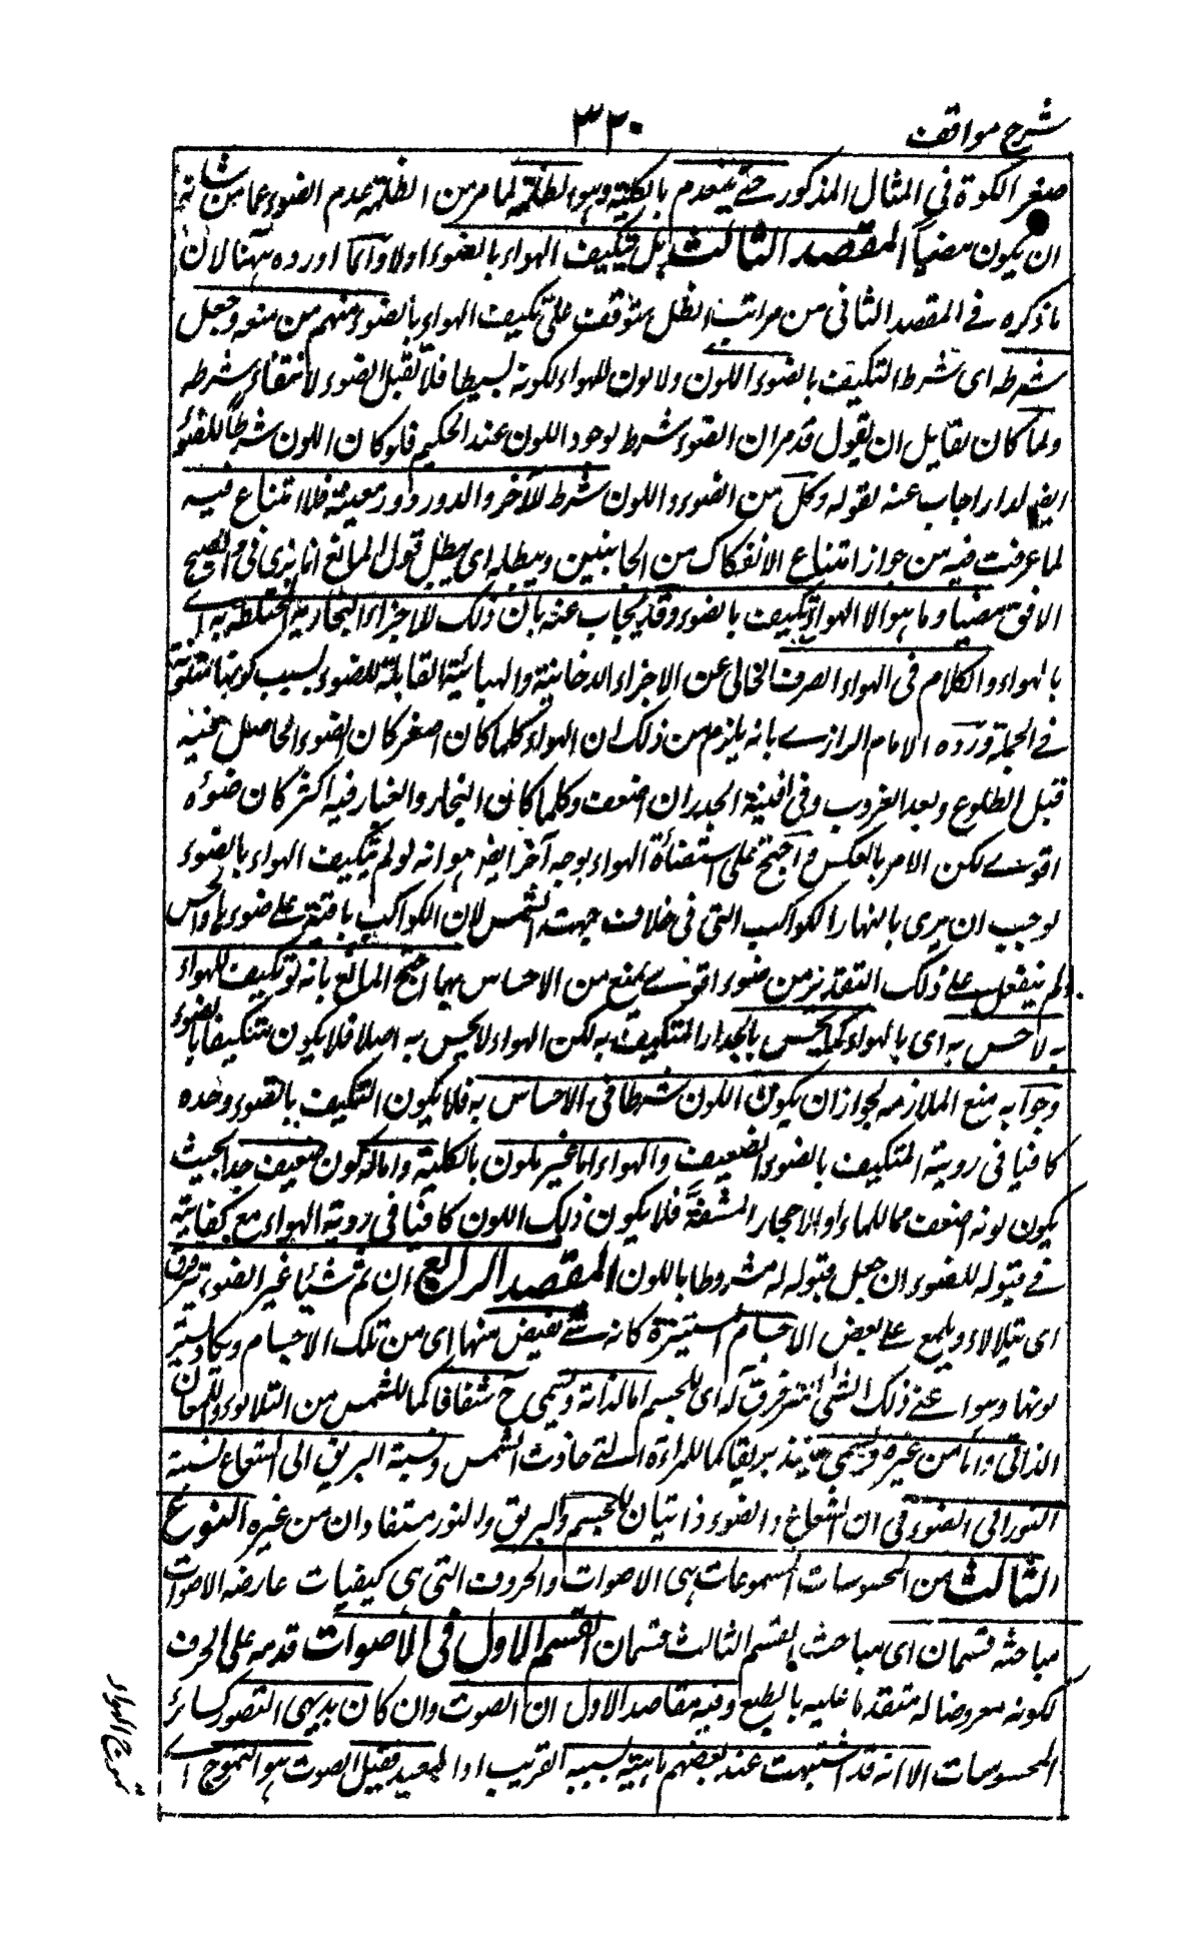 شرح مواقف
٣٣٠
صغر الكوة فى المثال المذكور حتے ينعدم بالكلية وہو الظلمة لما مر من ان الظلمة عدم الضوء عما من شانہ
ان يكون مضيأ المقصد الثالث ہل يتكيف الہواء بالضوء اولا وانما اورده ہہنا لان
ما ذكره فے المقصد الثانى من مراتب الظل متوقف على تكيف الہواء بالضوء منہم من منعہ وجعل
شرطہ اى شرط التكيف بالضوء اللون ولا لون للہواء لكونہ بسيطا فلا يقبل الضوء لانتفاء شرطہ
ولما كان لقايل ان يقول قد مر ان الضوء شرط لوجود اللون عند الحكيم فلو كان اللون شرطاً للضوء
ايضا لدار اجاب عنہ بقولہ وكل من الضوء واللون شرط للآخر والدور دور معية فلا امتناع فيہ
لما عرفت فيہ من جواز امتناع الانفكاك من الجانبين ويبطلہ اى يبطل قول المانع انا نرى فى الصبح
الافق مضيا وما ہو الا الہواء تكيف بالضوء وقد يجاب عنہ بان ذلك للاجزاء البخارية المختلطة بہ اے
بالہواء والكلام فى الہواء الصرف الخالى عن الاجزاء الدخانية والہبائية القابلة للضوء بسبب كونہا متلونة
فے الجملة ورده الامام الرازے بانہ يلزم من ذلك ان الہواء كلما كان اصفر كان الضوء الحاصل فيہ
قبل الطلوع وبعد الغروب وفى افنية الجدران اضعف وكلما كان البخار والغبار فيہ اكثر كان ضوئہ
اقوے لكن الامر بالعكس واحتج على استضاءة الہواء بوجہ آخر ايضا ہو انہ لو لم يتكيف الہواء بالضوء
لوجب ان يرى بالنہار الكواكب التى فى خلاف جہة الشمس لان الكواكب باقية على ضوءہا والحس
لم ينفعل علے ذلك التقدير من ضوء اقوے يمنع من الاحساس بہا احتج المانع بانہ لو تكيف الہواء
بہ لاحس بہ اى بالہواء كما يحس بالجدار المتكيف بہ لكن الہواء لا يحس بہ اصلا فلا يكون متكيفا بالضوء
وجوابہ منع الملازمہ لجواز ان يكون اللون شرطا فى الاحساس بہ فلا يكون التكيف بالضوء وحده
كافيا فى روية المتكيف بالضوء الضعيف والہواء اما غير ملون بالكلية واما لہ لون ضعيف جدا بحيث
يكون لونہ اضعف مما للماء او للاحجار المشفة فلا يكون ذلك اللون كافيا فى روية الہواء مع كفايتہ
فے قبولہ للضوء ان جعل قبولہ لہ مشروطا باللون المقصد الرابع ان ثم شيئا غير الضوء يترقرق
اى يتلالاء ويلمع علے بعض الاجسام المستنيرة كانہ شے يفيض منہا اى من تلك الاجسام ويكاد يستر
لونہا وہو اعنے ذلك الشئ المترقرق لہ اى للجسم اما لذاتہ ويسمى ح شعاعا كما للشمس من التلالؤ واللمعان
الذاتى واما من غيره ويسمى حينئذ بريقا كما للمراة التے حاذت الشمس ونسبة البريق الى الشعاع نسبة
النور الى الضوء فى ان الشعاع والضوء ذاتيان للجسم والبريق والنور مستفادان من غيره النوع
الثالث من المحسوسات المسموعات ہى الاصوات والحروف التى ہى كيفيات عارضہ للاصوات
مباحثہ قسمان اى مباحث القسم الثالث قسمان القسم الاول فى الاصوات قدمہ على الحرف
لكونہ معروضا لہ متقدما عليہ بالطبع وفيہ مقاصد الاول ان الصوت وان كان بديہى التصور كسائر
المحسوسات الا انہ قد اشتبہت عند بعضہم ماہيتہ بسببہ القريب او البعيد فقيل الصوت ہو التموج اے
تموج الہواء